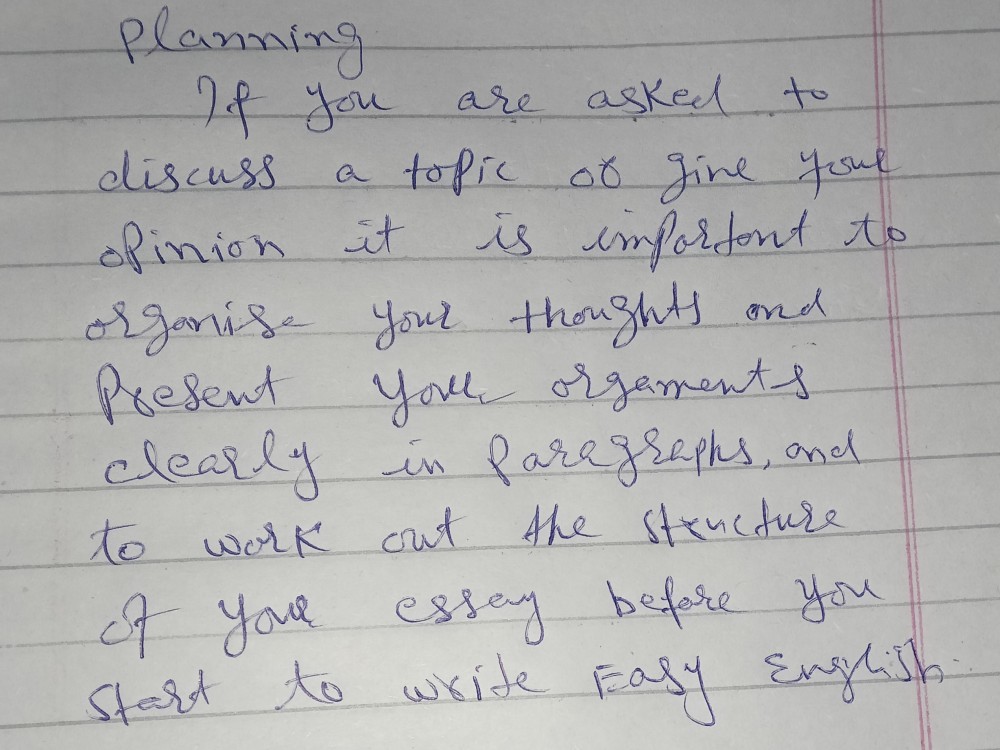 Planning
If you are asked to
discuss a topic or give your
opinion it is important to
organise your thoughts and
Present your orgaments
clearly in Paragraphs, and
to work out the structure
of your essay before you
start to write Easy English.